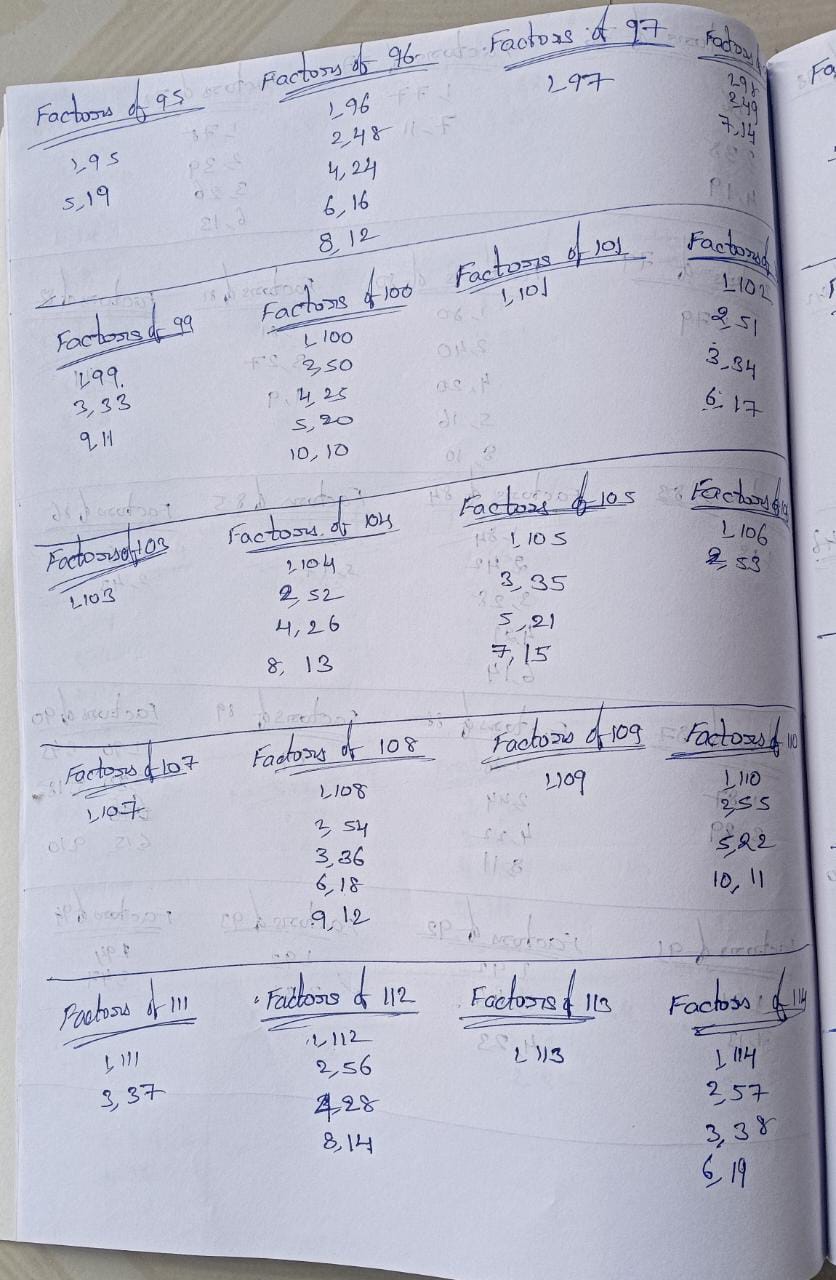 Factors of 95
1,95
5,19
Factors of 96
1,96
2,48
4,24
6,16
8,12
Factors of 97
1,97
Factors
1,98
2,49
7,14
Factors of 99
1,99.
3,33
9,11
Factors of 100
1,100
2,50
4,25
5,20
10,10
Factors of 101
1,101
Factors of
1,102
2,51
3,34
6,17
Factors of 103
1,103
Factors of 104
1,104
2,52
4,26
8,13
Factors of 105
1,105
3,35
5,21
7,15
Factors of
1,106
2,53
Factors of 107
1,107
Factors of 108
1,108
2,54
3,36
6,18
9,12
Factors of 109
1,109
Factors of 110
1,110
2,55
5,22
10,11
Factors of 111
1,111
3,37
Factors of 112
1,112
2,56
4,28
8,14
Factors of 113
1,113
Factors of 114
1,114
2,57
3,38
6,19
Fa